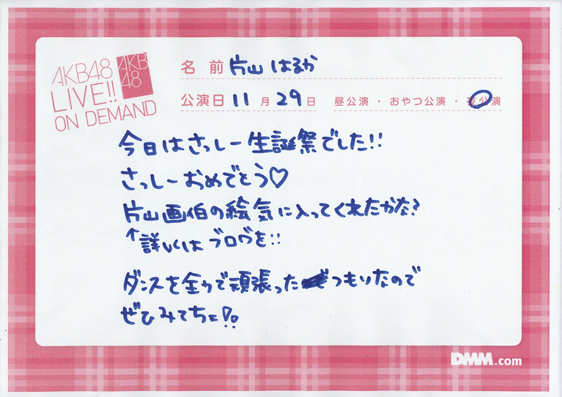 AKB48
LIVE!!
ON DEMAND
AKB
48
名 前 片山 はるか
公演日 11 月 29 日 昼公演・おやつ公演・夜公演
今日はさっしー生誕祭でした!!
さっしーおめでとう♡
片山画伯の絵気に入ってくれたかな?
↑詳しくはブログを!!
ダンスを全力で頑張ったつもりなので
ぜひみてちょ!!
DMM.com